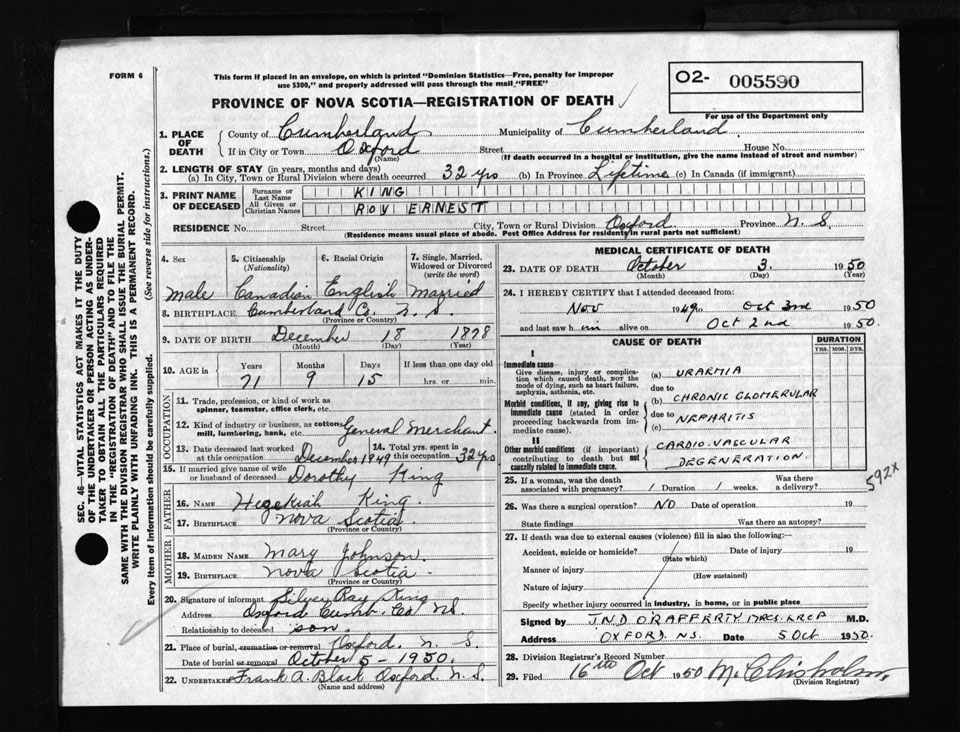 FORM 6
This form if placed in an envelope, on which is printed "Dominion Statistics—Free, penalty for improper
use $300," and properly addressed will pass through the mail "FREE"
O2- 005590
For use of the Department only
PROVINCE OF NOVA SCOTIA—REGISTRATION OF DEATH
1. PLACE OF DEATH
County of Cumberland Municipality of Cumberland
If in City or Town Oxford Street House No.
(Name) (If death occurred in a hospital or institution, give the name instead of street and number)
2. LENGTH OF STAY (in years, months and days)
(a) In City, Town or Rural Division where death occurred 32 yrs (b) In Province Lifetime (c) In Canada (if immigrant)
3. PRINT NAME OF DECEASED
Surname or Last Name KING
All Given or Christian Names ROY ERNEST
RESIDENCE No. Street City, Town or Rural Division Oxford. Province N. S.
(Residence means usual place of abode. Post Office Address for residents in rural parts not sufficient)
4. Sex
Male
5. Citizenship
(Nationality)
Canadian
6. Racial Origin
English
7. Single, Married,
Widowed or Divorced
(write the word)
Married
8. BIRTHPLACE Cumberland Co. N. S.
(Province or Country)
9. DATE OF BIRTH December 18 1878
(Month) (Day) (Year)
10. AGE in Years Months Days If less than one day old
71 9 15 hrs. or min.
OCCUPATION
11. Trade, profession, or kind of work as
spinner, teamster, office clerk, etc.
12. Kind of industry or business, as cotton
mill, lumbering, bank, etc. General Merchant.
13. Date deceased last worked
at this occupation December 1949
14. Total yrs. spent in
this occupation 32 yrs
15. If married give name of wife
or husband of deceased Dorothy King
FATHER
16. NAME Hezekiah King.
17. BIRTHPLACE Nova Scotia
(Province or Country)
MOTHER
18. MAIDEN NAME Mary Johnson.
19. BIRTHPLACE Nova Scotia
(Province or Country)
20. Signature of informant Ray King
Address Oxford Cumb. Co. N.S.
Relationship to deceased son.
21. Place of burial, cremation or removal Oxford. N. S.
Date of burial or removal October 5 - 1950.
22. Undertaker Frank A. Black Oxford. N. S.
(Name and address)
MEDICAL CERTIFICATE OF DEATH
23. DATE OF DEATH October 3. 1950
(Month) (Day) (Year)
24. I HEREBY CERTIFY that I attended deceased from:
Nov 1949 to Oct 3rd 1950
and last saw him alive on Oct 2nd 1950.
CAUSE OF DEATH
DURATION
YRS. MOS. DYS.
I
Immediate cause
Give disease, injury or complica-
tion which caused death, NOT the
mode of dying, such as heart failure,
asphyxia, asthenia, etc.
Morbid conditions, if any, giving rise to
immediate cause (stated in order
proceeding backwards from im-
mediate cause).
(a) URAEMIA
due to
(b) CHRONIC GLOMERULAR
due to NEPHRITIS
(c)
II
Other morbid conditions (if important)
contributing to death but not
causally related to immediate cause.
CARDIO-VASCULAR
DEGENERATION.
592X
25. If a woman, was the death
associated with pregnancy? Duration weeks. Was there
a delivery?
26. Was there a surgical operation? NO Date of operation 19
State findings Was there an autopsy?
27. If death was due to external causes (violence) fill in also the following:
Accident, suicide or homicide? Date of injury 19
(State which)
Manner of injury
(How sustained)
Nature of injury
Specify whether injury occurred in industry, in home, or in public place
Signed by J.N.D O'RAFFERTY MRCS. LRCP M.D.
Address OXFORD. NS. Date 5 Oct 1950.
28. Division Registrar's Record Number
29. Filed 16th Oct 1950 M. Chisholm
(Division Registrar)
SEC. 46—VITAL STATISTICS ACT MAKES IT THE DUTY
OF THE UNDERTAKER OR PERSON ACTING AS UNDER-
TAKER TO OBTAIN ALL THE PARTICULARS REQUIRED
IN THE "REGISTRATION OF DEATH" AND TO FILE THE
SAME WITH THE DIVISION REGISTRAR WHO SHALL ISSUE THE BURIAL PERMIT.
WRITE PLAINLY WITH UNFADING INK. THIS IS A PERMANENT RECORD.
Every item of information should be carefully supplied. (See reverse side for instructions.)